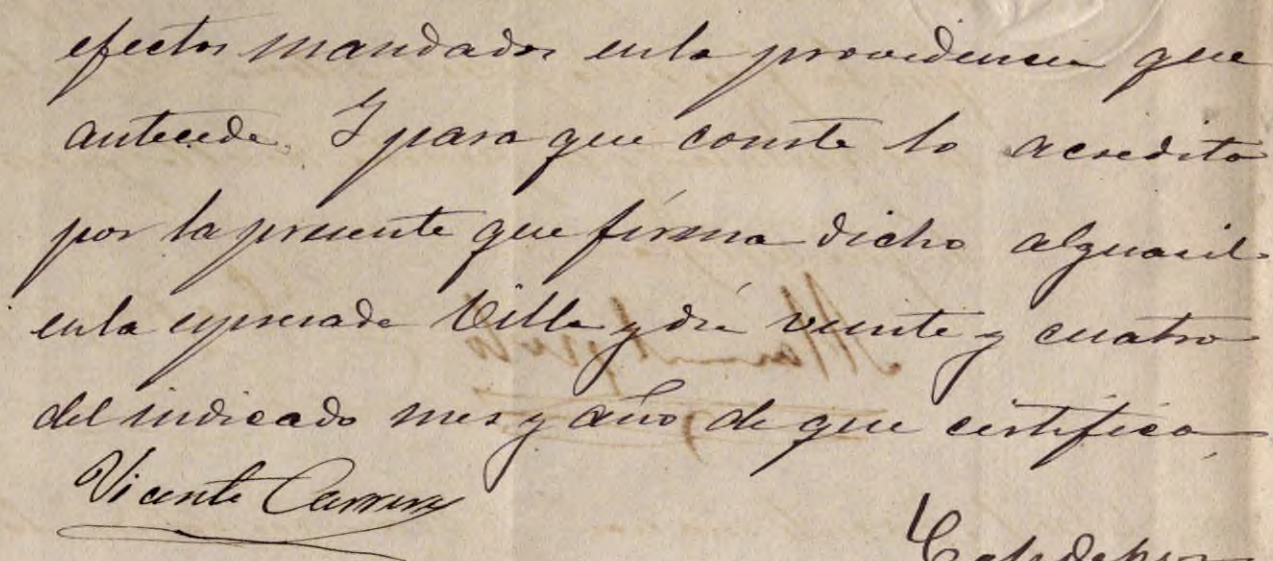 efectos mandados en la providencia que
antecede. I para que conste lo acredito
por la presente que firma dicho alguasil
en la espresada Villa y dia veinte y cuatro
del indicado mes y año de que certifico
Vicente